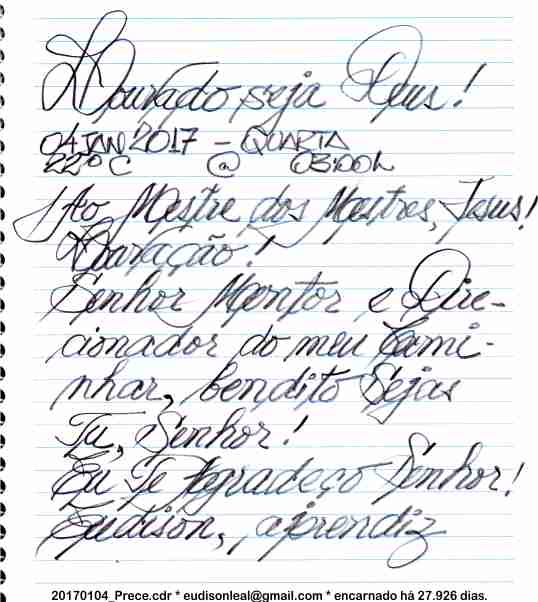 Louvado seja Deus!
04 JAN 2017 - QUARTA
22º C @ 03:00h
Ao Mestre dos Mestres, Jesus!
Louvação!
Senhor Mentor e Dire-
cionador do meu Cami-
nhar, bendito Sejas
Tu, Senhor!
Eu Te Agradeço Senhor!
Eudison, aprendiz
20170104_Prece.cdr * eudisonleal@gmail.com * encarnado há 27.926 dias.